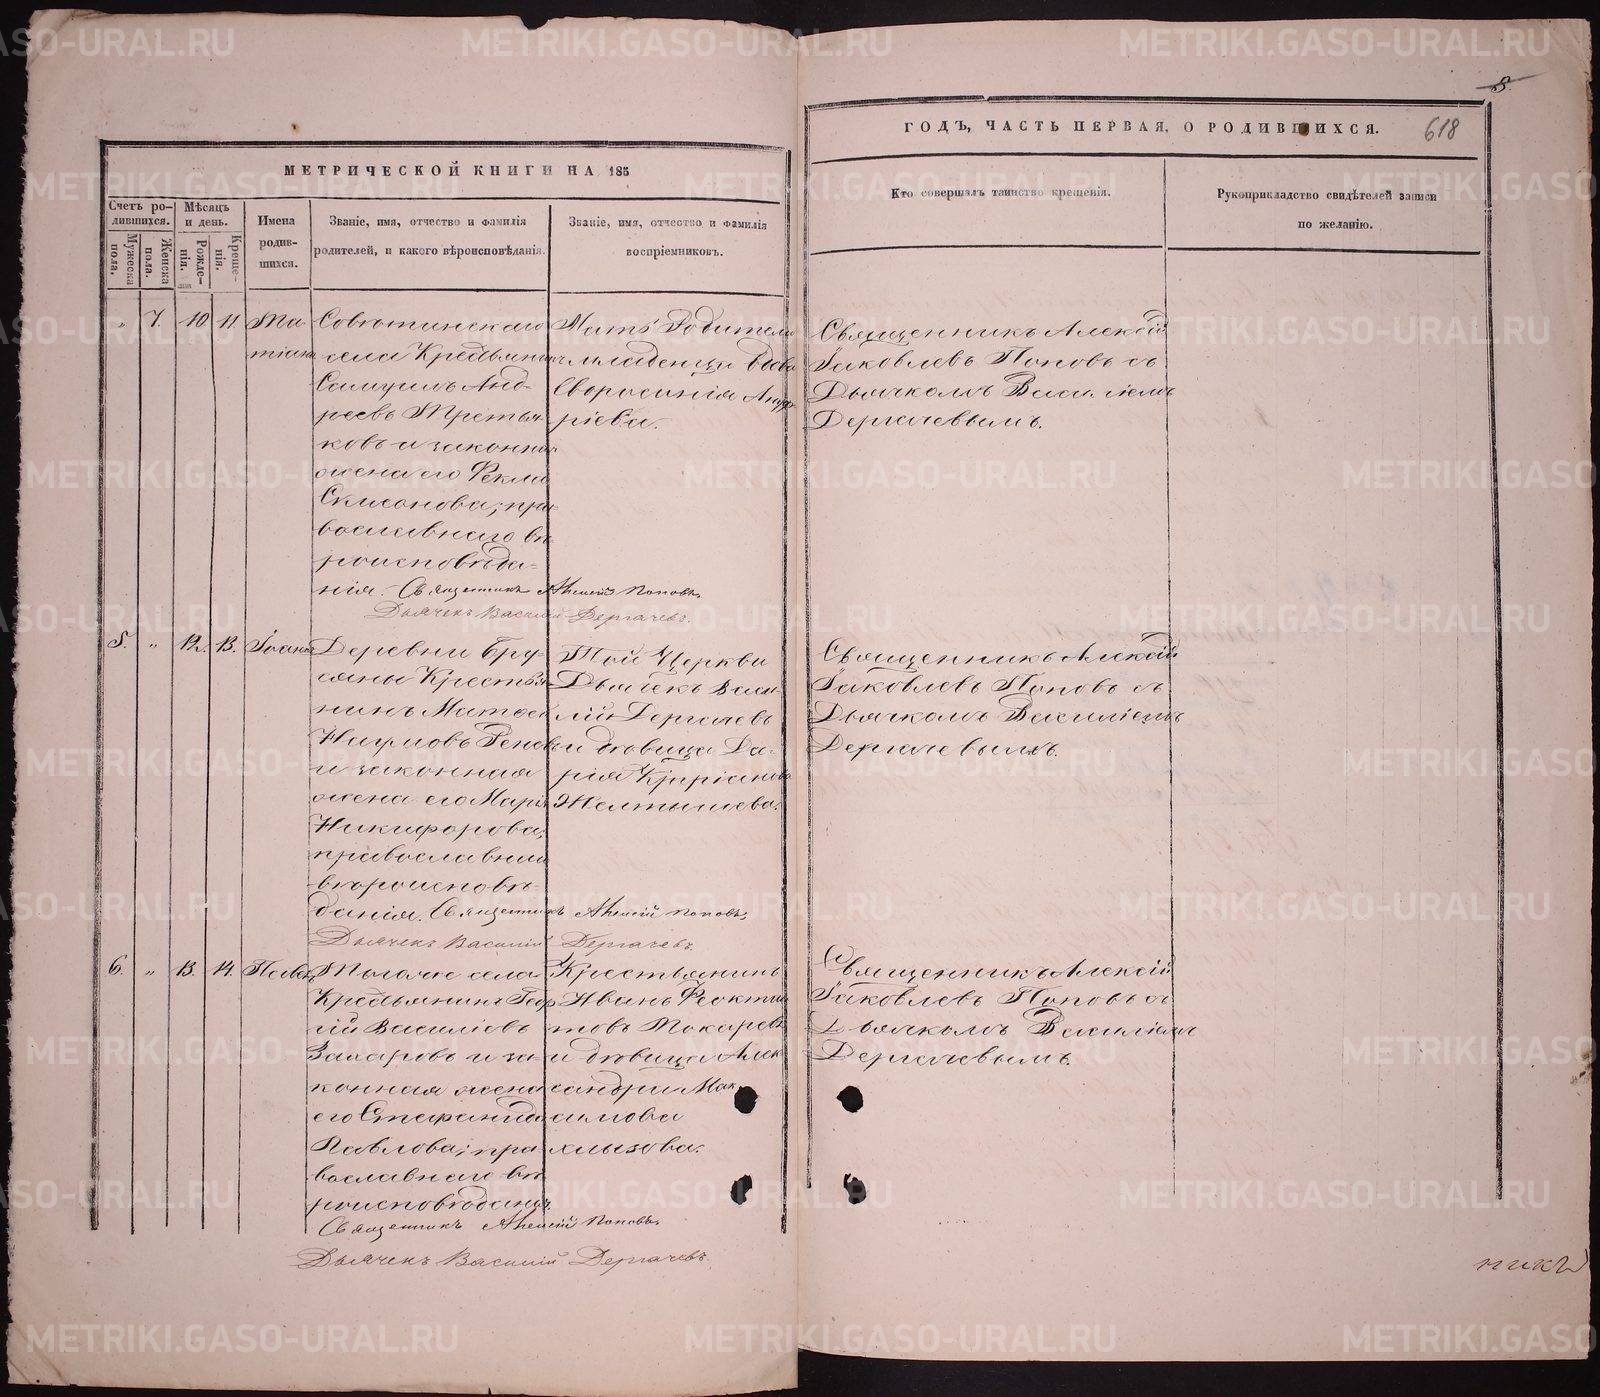 8.
618
МЕТРИЧЕСКОЙ КНИГИ НА 185
ГОДЪ, ЧАСТЬ ПЕРВАЯ, О РОДИВШИХСЯ.
Счетъ ро-
дившихся.
Мужеска
пола.
Женска
пола.
Мѣсяцъ
и день.
Рожде-
нія.
Креще-
нія.
Имена
родив-
шихся.
Званіе, имя, отчество и фамилія
родителей, и какого вѣроисповѣданія.
Званіе, имя, отчество и фамилія
воспріемниковъ.
Кто совершалъ таинство крещенія.
Рукоприкладство свидѣтелей записи
по желанію.
„
7.
10
11.
села Крестьянинъ
Самуилъ Анд-
реевъ Третья-
ковъ и законная
жена его Фекла
православнаго вѣ-
роисповѣда-
нія. Священникъ Алексій Поповъ.
Дьячекъ Василій Дергачевъ.
Мать Родителя
младенца вдова
Андр-
ріева.
Священникъ Алексій
Іаковлевъ Поповъ съ
Дьячкомъ Василіемъ
Дергачевымъ.
5.
„
12.
13.
Іоаннъ
Деревни Бру-
сяны Крестья-
нинъ Матвей
Наумовъ
и законная
жена его Марія
Никифорова,
православнаго
вѣроисповѣ-
данія. Священникъ Алексій Поповъ.
Дьячекъ Василій Дергачевъ.
Той Церкви
Дьячекъ Васи-
лій Дергачевъ
и дѣвица Да-
рія Кипріанова
Желтышева.
Священникъ Алексій
Іаковлевъ Поповъ съ
Дьячкомъ Василіемъ
Дергачевымъ.
6.
„
13.
14.
Павелъ
Тогоже села
Крестьянинъ Геор-
гій Василіевъ
Захаровъ и за-
конная жена
его Стефанида
Павлова, пра-
вославнаго вѣ-
роисповѣданія
Священникъ Алексій Поповъ.
Дьячекъ Василій Дергачевъ.
Крестьянинъ
Иванъ Феокти-
товъ Токаревъ
и дѣвица Алек-
сандра Мак-
симова
Священникъ Алексій
Іаковлевъ Поповъ съ
Дьячкомъ Василіемъ
Дергачевымъ.